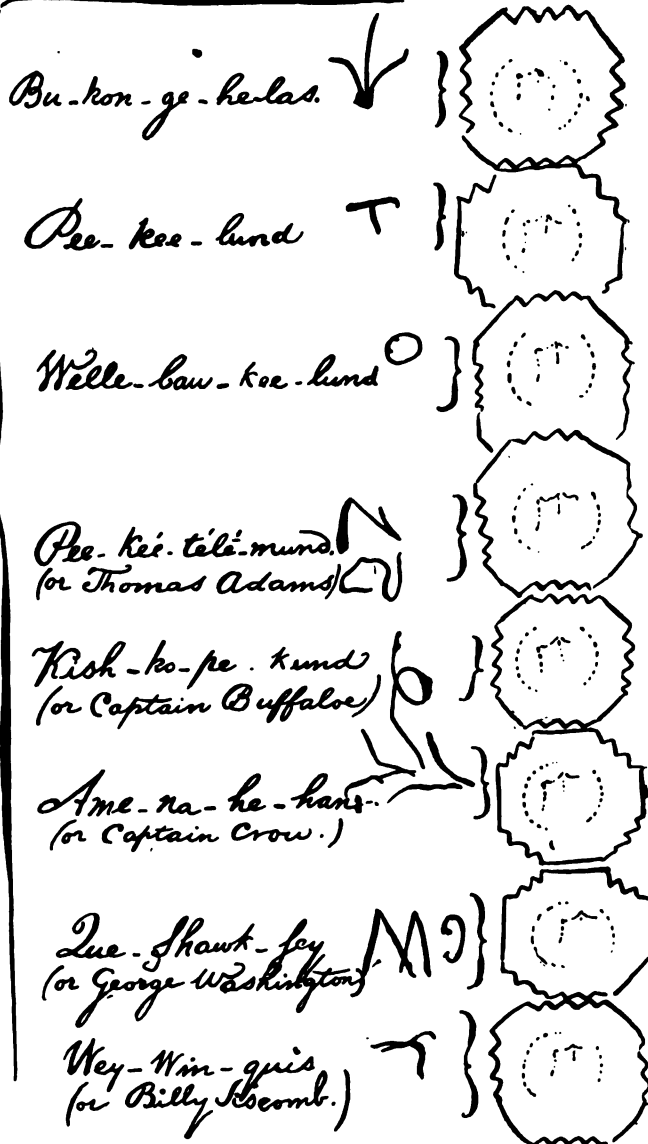 Bu-kon-ge-helas.
Pee-kee-lund
Welle-baw-kee-lund
Pee-kee-télé-mund.
(or Thomas Adams)
Kish-ko-pe.kund
(or Captain Buffaloe)
Ame-na-he-han.
(or Captain Crow.)
Que-Shawk-sey
(or George Washington)
Wey-Win-quis
(or Billy Siscomb.)